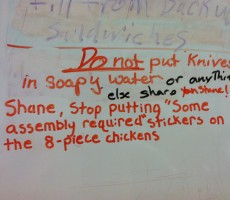 fill from back w
Sandwiches
Do not put Knives
in soapy water or anything
else sharp Yeah Shane!
Shane, Stop putting "Some
assembly required" stickers on
the 8-piece chickens